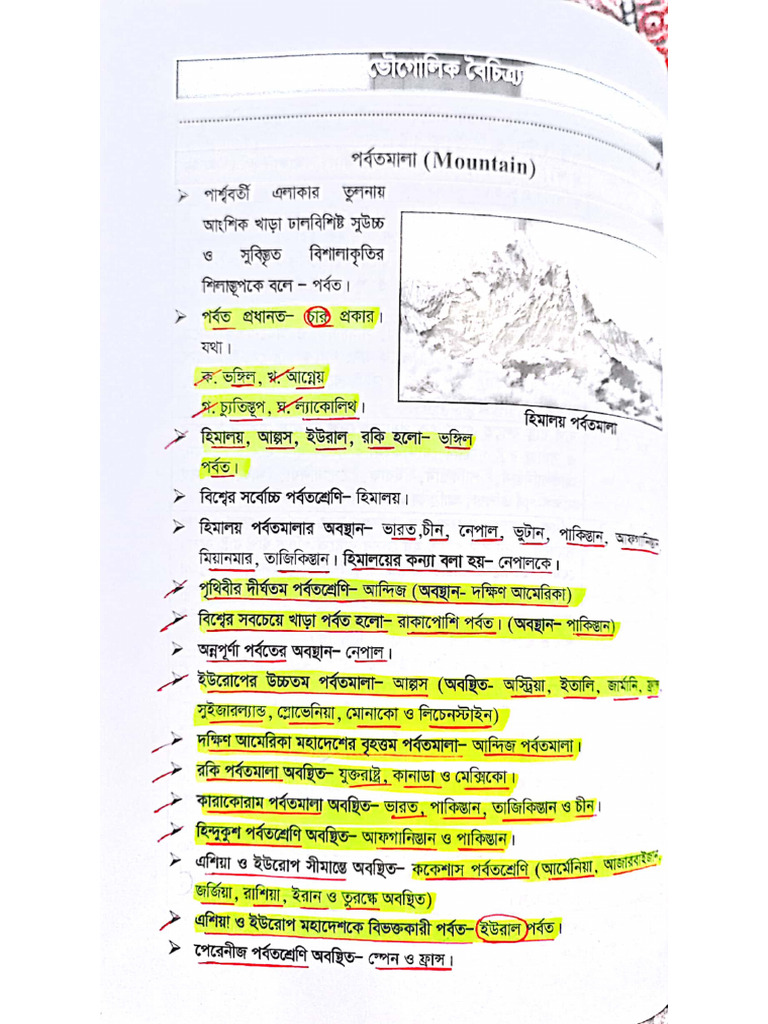 ভৌগোলিক বৈচিত্র্য
পর্বতমালা (Mountain)
➤ পার্শ্ববর্তী এলাকার তুলনায়
আংশিক খাড়া ঢালবিশিষ্ট সুউচ্চ
ও সুবিস্তৃত বিশালাকৃতির
শিলাস্তূপকে বলে – পর্বত।
➤ পর্বত প্রধানত– চার প্রকার।
যথা।
ক. ভঙ্গিল, খ. আগ্নেয়
গ. চ্যুতিস্তূপ, ঘ. ল্যাকোলিথ।
হিমালয় পর্বতমালা
➤ হিমালয়, আল্পস, ইউরাল, রকি হলো– ভঙ্গিল
পর্বত।
➤ বিশ্বের সর্বোচ্চ পর্বতশ্রেণি– হিমালয়।
➤ হিমালয় পর্বতমালার অবস্থান– ভারত,চীন, নেপাল, ভুটান, পাকিস্তান, আফগানিস্তান
মিয়ানমার, তাজিকিস্তান। হিমালয়ের কন্যা বলা হয়– নেপালকে।
➤ পৃথিবীর দীর্ঘতম পর্বতশ্রেণি– আন্দিজ (অবস্থান– দক্ষিণ আমেরিকা)
➤ বিশ্বের সবচেয়ে খাড়া পর্বত হলো– রাকাপোশি পর্বত। (অবস্থান– পাকিস্তান)
➤ অন্নপূর্ণা পর্বতের অবস্থান– নেপাল।
➤ ইউরোপের উচ্চতম পর্বতমালা– আল্পস (অবস্থিত– অস্ট্রিয়া, ইতালি, জার্মানি,
সুইজারল্যান্ড, স্লোভেনিয়া, মোনাকো ও লিচেনস্টাইন)
➤ দক্ষিণ আমেরিকা মহাদেশের বৃহত্তম পর্বতমালা– আন্দিজ পর্বতমালা।
➤ রকি পর্বতমালা অবস্থিত– যুক্তরাষ্ট্র, কানাডা ও মেক্সিকো।
➤ কারাকোরাম পর্বতমালা অবস্থিত– ভারত, পাকিস্তান, তাজিকিস্তান ও চীন।
➤ হিন্দুকুশ পর্বতশ্রেণি অবস্থিত– আফগানিস্তান ও পাকিস্তান।
➤ এশিয়া ও ইউরোপ সীমান্তে অবস্থিত– ককেশাস পর্বতশ্রেণি (আর্মেনিয়া, আজারবাইজান,
জর্জিয়া, রাশিয়া, ইরান ও তুরস্কে অবস্থিত)
➤ এশিয়া ও ইউরোপ মহাদেশকে বিভক্তকারী পর্বত– ইউরাল পর্বত।
➤ পেরেনীজ পর্বতশ্রেণি অবস্থিত– স্পেন ও ফ্রান্স।